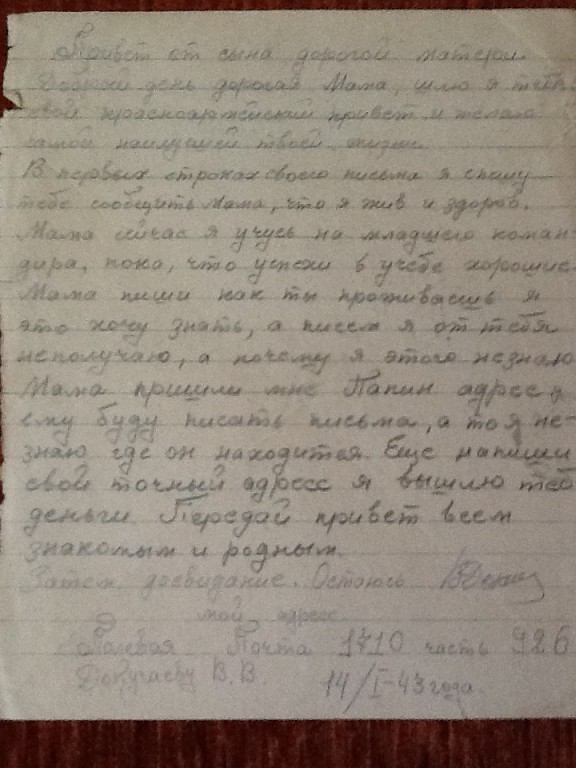 Привет от сына дорогой матери.
Добрый день дорогая Мама, шлю я тебе
свой красноармейский привет и желаю
самой наилучшей твоей жизни.
В первых строках своего письма я спешу
тебе сообщить Мама, что я жив и здоров.
Мама сейчас я учусь на младшего коман-
дира, пока, что успехи в учебе хорошие
Мама пиши как ты проживаешь я
это хочу знать, а писем я от тебя
неполучаю, а почему я этого незнаю
Мама пришли мне Папин адрес я
ему буду писать письма, а то я не-
знаю где он находится. Еще напиши
свой точный адресс я вышлю тебе
деньги. Передай привет всем
знакомым и родным.
Затем досвидание. Остаюсь
мой адрес
Полевая Почта 1710 часть 926
Докучаеву В.В. 14/I-43 года.